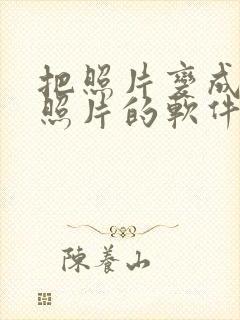 把照片變成
照片的軟件
陳養山